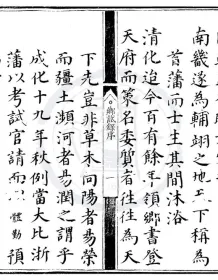 南畿遂為輔翊之地下稱為
首藩而士生其間沐浴
清化迨今百有餘年領鄉書登
天府而策名委質者往往為天
鄉試錄序
下先豈非草木向陽者易榮
而疆土瀕河者易潤之謂乎
成化十九年秋例當大比浙
藩以考試官請而體勤預